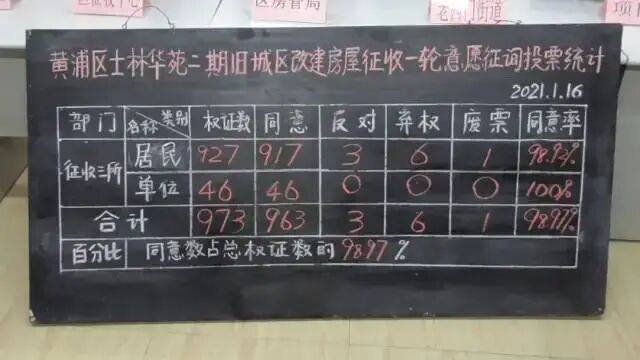 区房管局
老西门街道
黄浦区士林华苑二期旧城区改建房屋征收一轮意愿征询投票统计
2021.1.16
部门 名称 类别 权证数 同意 反对 弃权 废票 同意率
征收三所 居民 927 917 3 6 1 98.92%
单位 46 46 0 0 0 100%
合计 973 963 3 6 1 98.97%
百分比 同意数占总权证数的98.97%